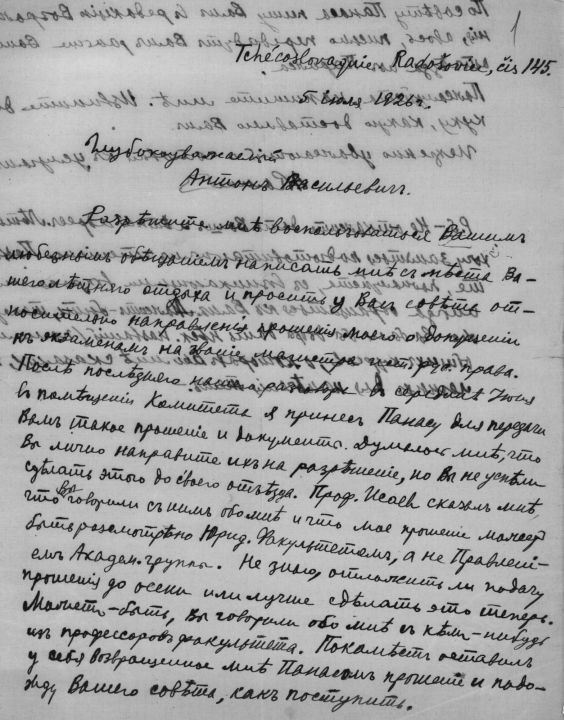 1
Tchécoslovaquie, Radošovice, čis 145.
5 июля 1926 г.
Глубокоуважаемый
Антонъ Васильевичъ.
Разрѣшите мнѣ воспользоваться Вашимъ
любезнымъ обѣщаніемъ написать мнѣ съ мѣста Ва-
шего лѣтняго отдыха и просить у Васъ совѣта от-
носительно направленія прошенія моего о допущеніи
къ экзаменамъ на званіе магистра ист. р. права.
Послѣ послѣдняго нашего разговора въ серединѣ Іюня
въ помѣщеніи Комитета я принесъ Панасу для передачи
Вамъ такое прошеніе и документы. Думалось мнѣ, что
Вы лично направите ихъ на разрѣшеніе, но Вы не успѣли
сдѣлать этого до своего отъѣзда. Проф. Исаев сказалъ мнѣ,
что Вы говорили съ нимъ обо мнѣ и что мое прошеніе можетъ
быть разсмотрѣно Юрид. Факультетомъ, а не Правлені-
емъ Академ. группы. Не знаю, отложить ли подачу
прошенія до осени или лучше сдѣлать это теперь.
Можетъ-быть, Вы говорили обо мнѣ съ кѣмъ-нибудь
изъ профессоровъ факультета. Покамѣстъ оставилъ
у себя возвращенное мнѣ Панасомъ прошеніе и подо-
жду Вашего совѣта, какъ поступить.